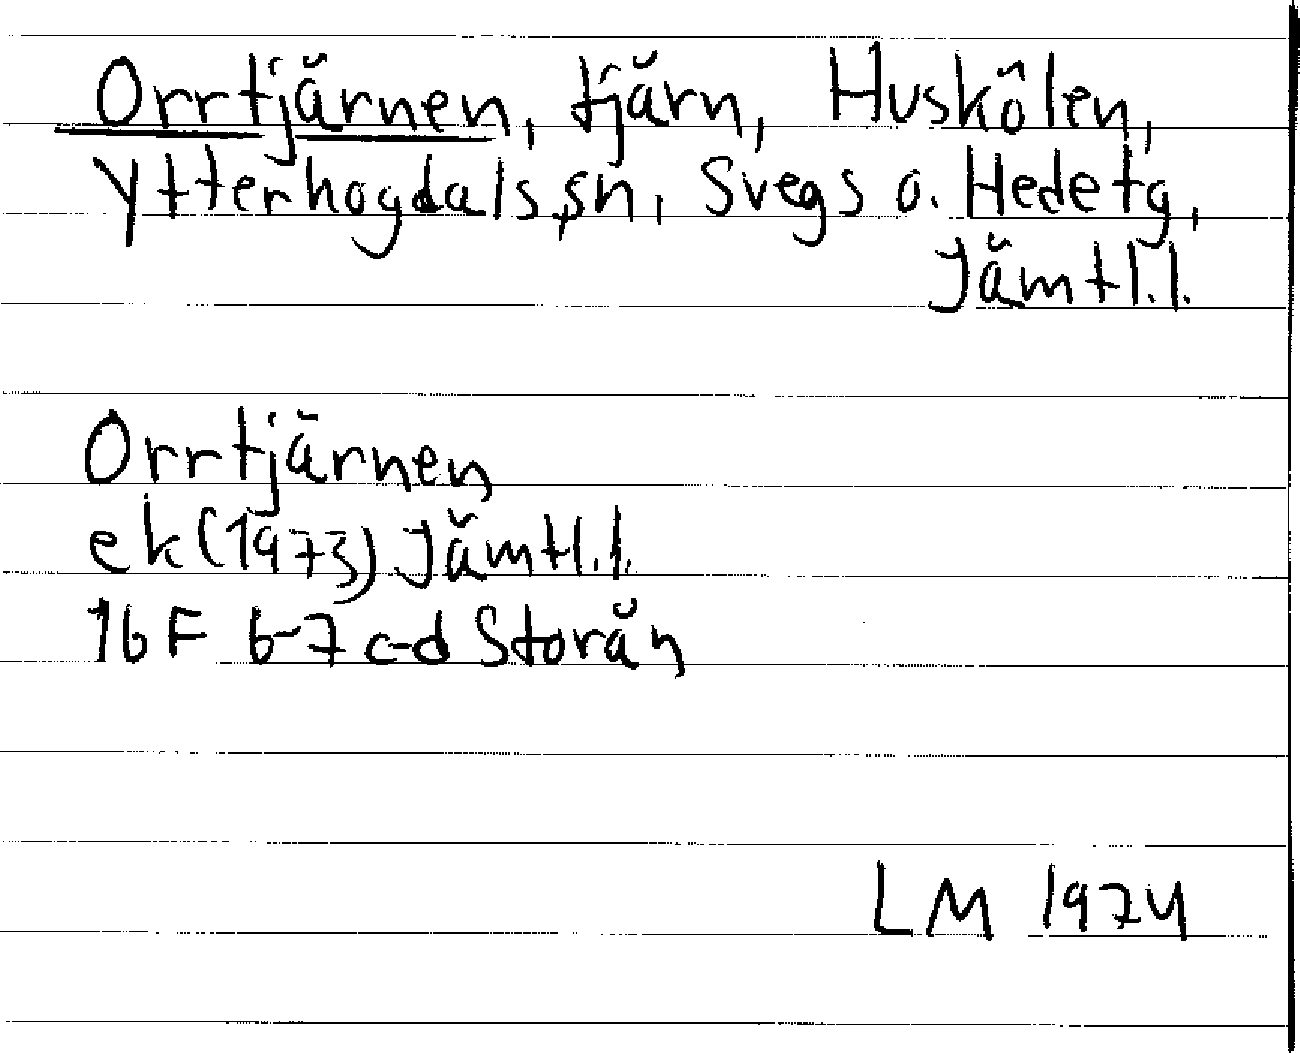 Orrtjärnen, tjärn, Huskölen,
Ytterhogdals sn, Svegs o. Hede tg,
Jämtl.l.
Orrtjärnen
ek (1973) Jämtl.l.
16F 6-7 c-d Storån
LM 1974